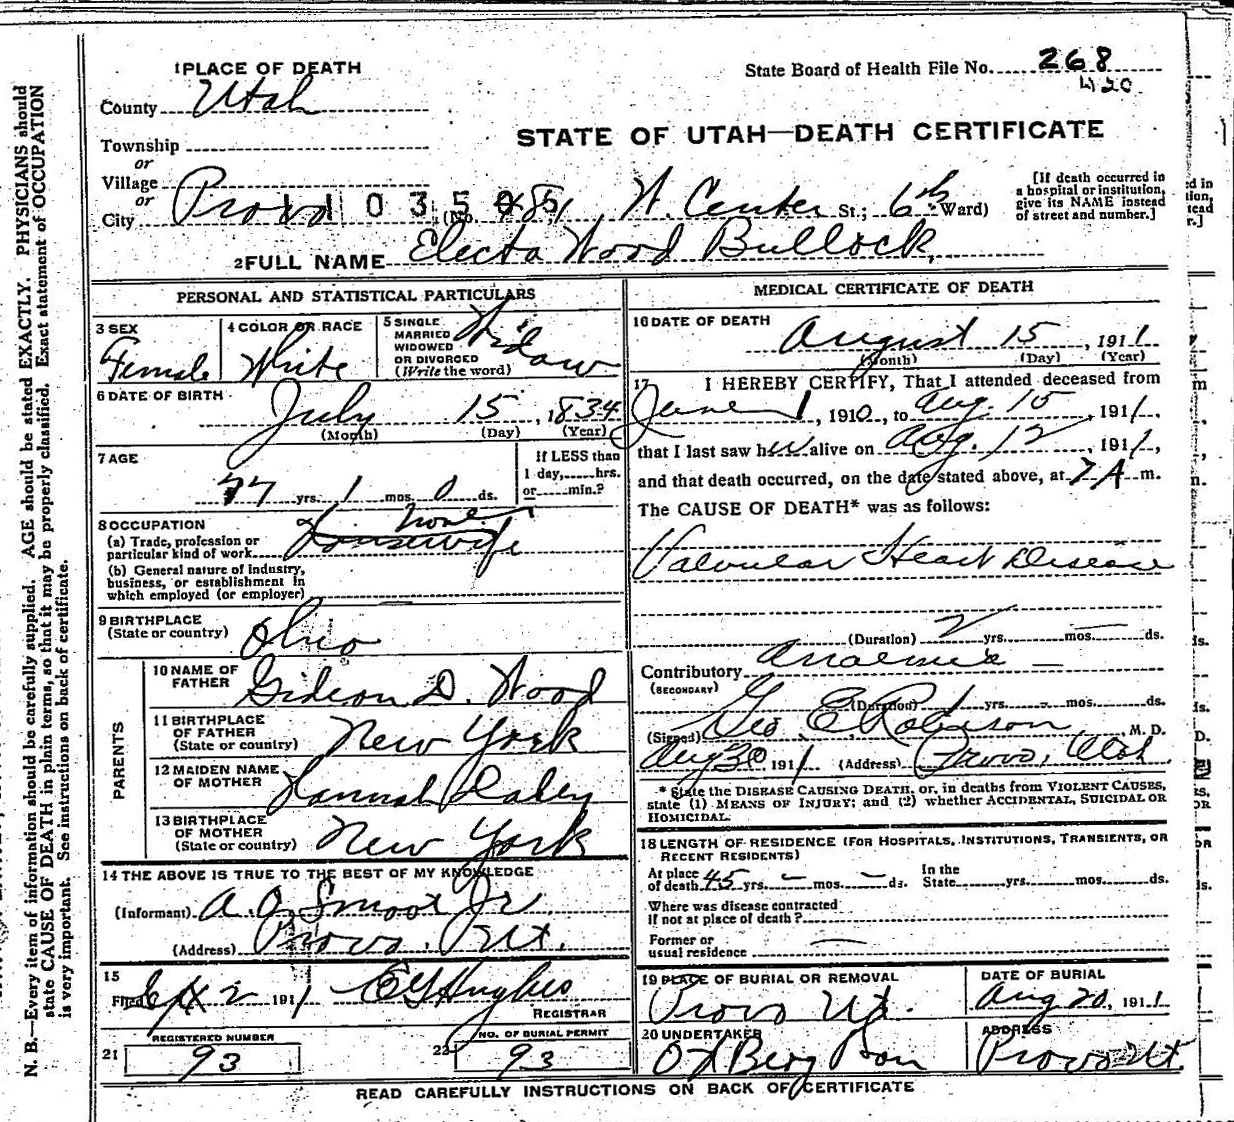 1 PLACE OF DEATH
County Utah
State Board of Health File No. 268
420
STATE OF UTAH—DEATH CERTIFICATE
Township
or
Village
or
City Provo (No. 481, W. Center St.; 6th Ward)
[If death occurred in
a hospital or institution,
give its NAME instead
of street and number.]
2 FULL NAME Electa Wood Bullock,
PERSONAL AND STATISTICAL PARTICULARS
3 SEX
Female
4 COLOR OR RACE
White
5 SINGLE
MARRIED
WIDOWED
OR DIVORCED
(Write the word)
Widow
6 DATE OF BIRTH
July 15, 1834
(Month) (Day) (Year)
7 AGE
77 yrs. 1 mos. 0 ds.
If LESS than
1 day, hrs.
or min.?
8 OCCUPATION
(a) Trade, profession or
particular kind of work
none
Housewife
(b) General nature of industry,
business, or establishment in
which employed (or employer)
9 BIRTHPLACE
(State or country)
Ohio
PARENTS
10 NAME OF
FATHER
Gideon D. Wood
11 BIRTHPLACE
OF FATHER
(State or country)
New York
12 MAIDEN NAME
OF MOTHER
Hannah Daley
13 BIRTHPLACE
OF MOTHER
(State or country)
New York
14 THE ABOVE IS TRUE TO THE BEST OF MY KNOWLEDGE
(Informant) A. O. Smoot Jr
(Address) Provo, Ut.
15
Filed 2 1911 Hughes
REGISTRAR
REGISTERED NUMBER
21 93
NO. OF BURIAL PERMIT
22 93
MEDICAL CERTIFICATE OF DEATH
16 DATE OF DEATH
August 15, 1911
(Month) (Day) (Year)
17 I HEREBY CERTIFY, That I attended deceased from
June 1, 1910, to Aug. 15, 1911,
that I last saw her alive on Aug. 12, 1911,
and that death occurred, on the date stated above, at 7 A m.
The CAUSE OF DEATH* was as follows:
Valvular Heart Disease
(Duration) 2 yrs. mos. — ds.
Contributory Anaemia —
(SECONDARY)
(Duration) 1 yrs. - mos. ds.
(Signed) Geo. E. Robison, M. D.
Aug 30 1911 (Address) Provo, Utah.
* State the DISEASE CAUSING DEATH, or, in deaths from VIOLENT CAUSES,
state (1) MEANS OF INJURY; and (2) whether ACCIDENTAL, SUICIDAL OR
HOMICIDAL.
18 LENGTH OF RESIDENCE (FOR HOSPITALS, INSTITUTIONS, TRANSIENTS, OR
RECENT RESIDENTS)
At place
of death 45 yrs. — mos. — ds.
In the
State yrs. mos. ds.
Where was disease contracted
if not at place of death?
Former or
usual residence —
19 PLACE OF BURIAL OR REMOVAL
Provo Ut.
DATE OF BURIAL
Aug 20, 1911
20 UNDERTAKER
O H Berg Son
ADDRESS
Provo Ut.
READ CAREFULLY INSTRUCTIONS ON BACK OF CERTIFICATE
N. B.—Every item of information should be carefully supplied. AGE should be stated EXACTLY. PHYSICIANS should
state CAUSE OF DEATH in plain terms, so that it may be properly classified. Exact statement of OCCUPATION
is very important. See instructions on back of certificate.